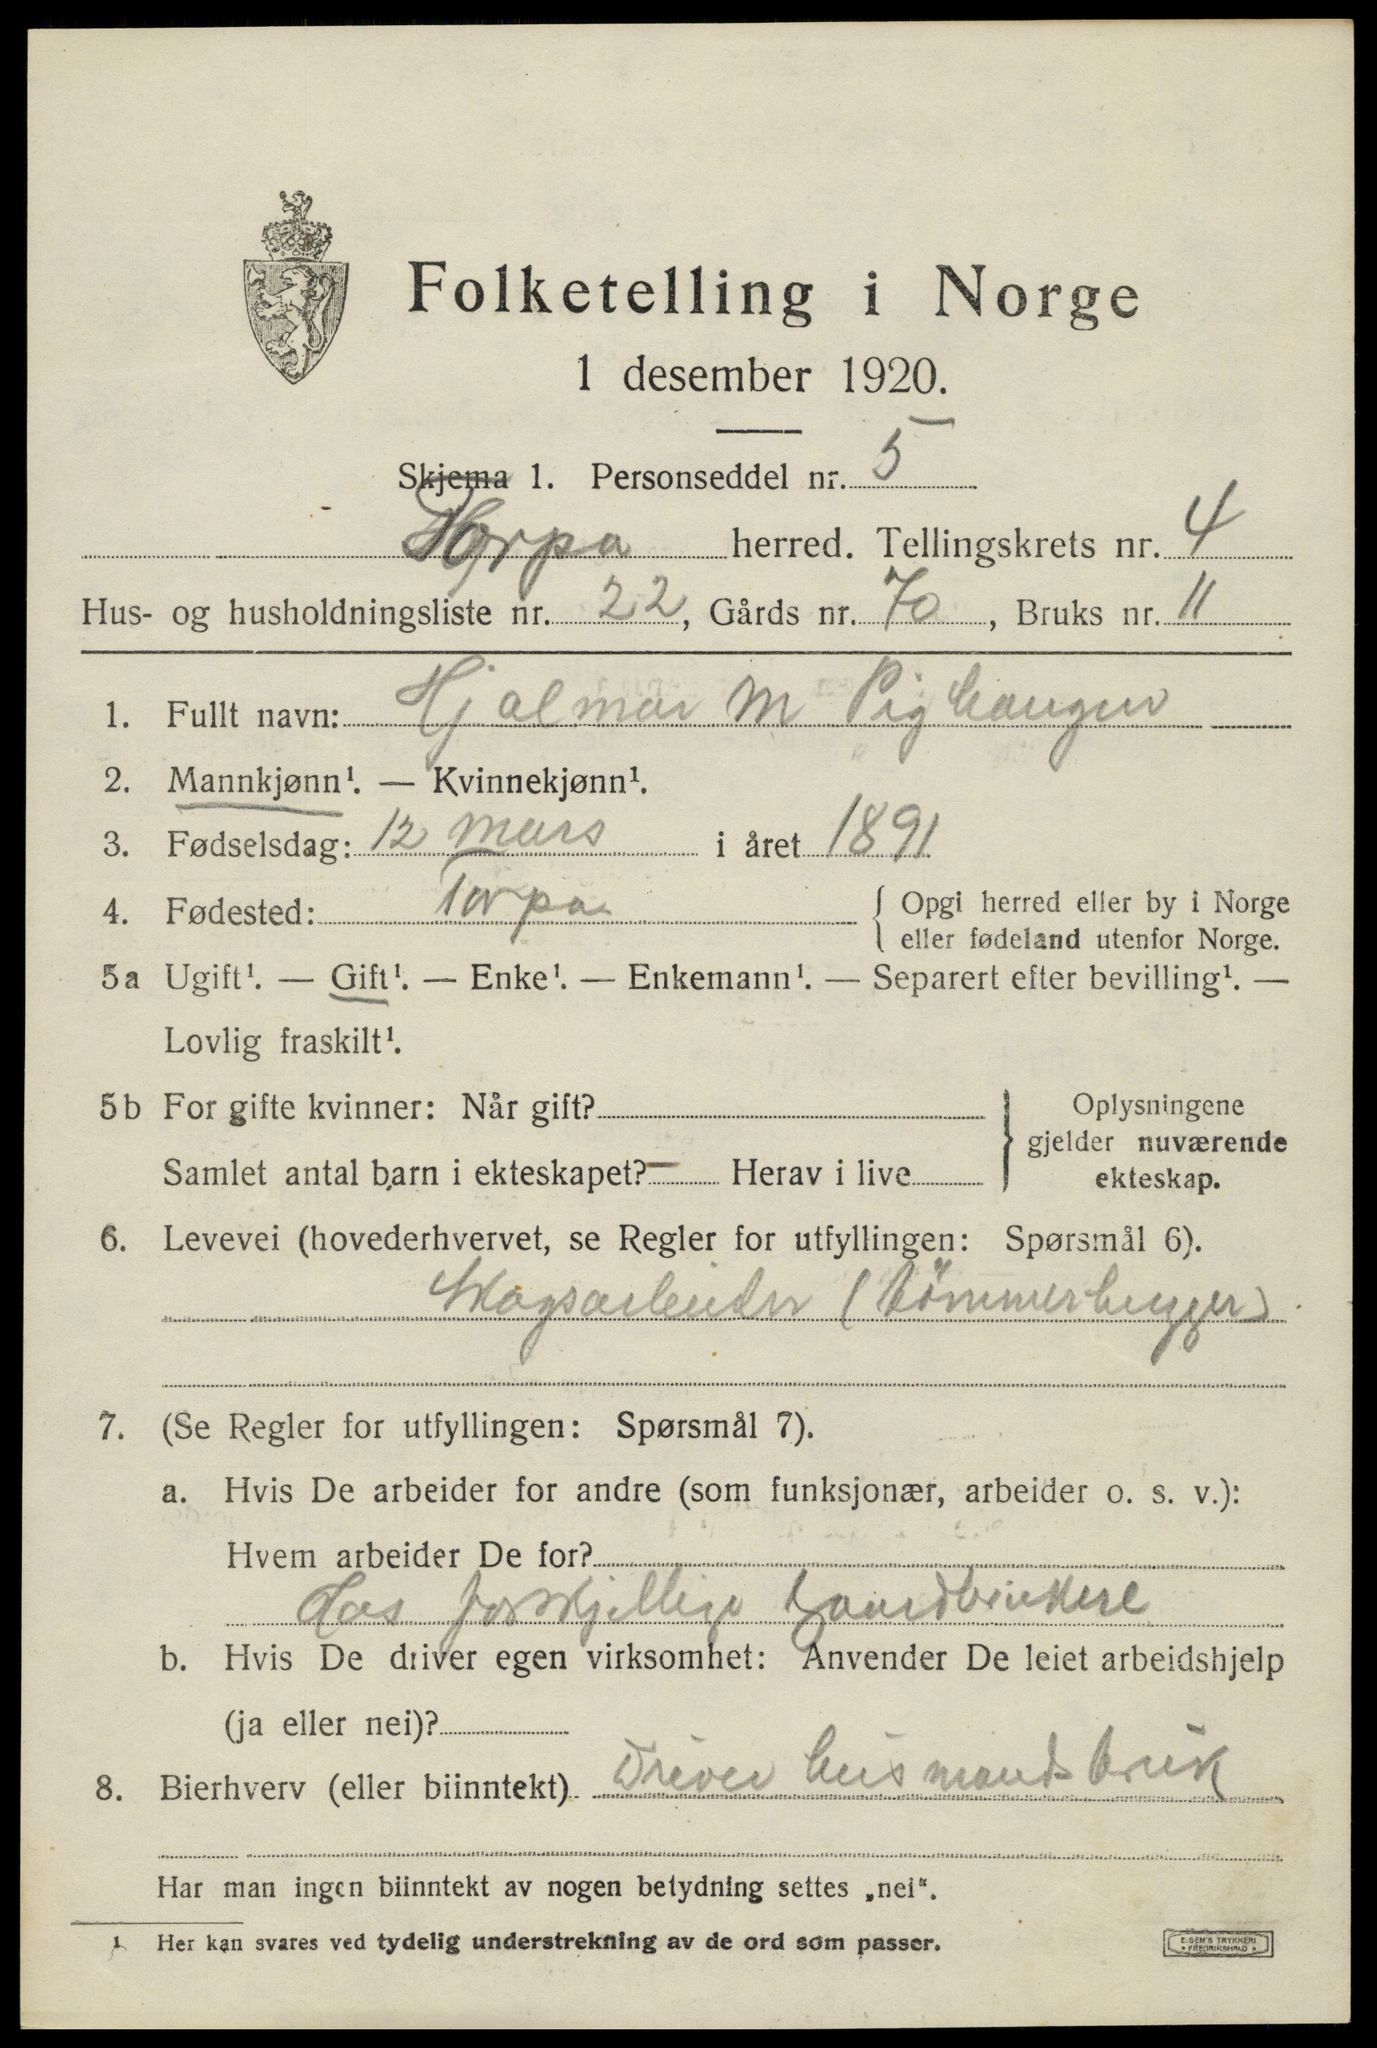 Folketelling i Norge
1 desember 1920.
Skjema 1. Personseddel nr. 5
Torpa herred. Tellingskrets nr. 4
Hus- og husholdningsliste nr. 22, Gårds nr. 70, Bruks nr. 11
1. Fullt navn: Hjalmar M Pighaugen
2. Mannkjønn¹. — Kvinnekjønn¹.
3. Fødselsdag: 12 mars i året 1891
4. Fødested: Torpa { Opgi herred eller by i Norge
eller fødeland utenfor Norge.
5a Ugift¹. — Gift¹. — Enke¹. — Enkemann¹. — Separert efter bevilling¹. —
Lovlig fraskilt¹.
5b For gifte kvinner: Når gift?
Samlet antal barn i ekteskapet? — Herav i live
} Oplysningene
gjelder nuværende
ekteskap.
6. Levevei (hovederhvervet, se Regler for utfyllingen: Spørsmål 6).
Skogsarbeider (tömmerhugger)
7. (Se Regler for utfyllingen: Spørsmål 7).
a. Hvis De arbeider for andre (som funksjonær, arbeider o. s. v.):
Hvem arbeider De for?
Hos forskjellige Landbrukere
b. Hvis De driver egen virksomhet: Anvender De leiet arbeidshjelp
(ja eller nei)?
8. Bierhverv (eller biinntekt) Driver husmandsbruk
Har man ingen biinntekt av nogen betydning settes „nei“.
1 Her kan svares ved tydelig understrekning av de ord som passer.
E. SEM'S TRYKKERI
• FREDRIKSHALD •